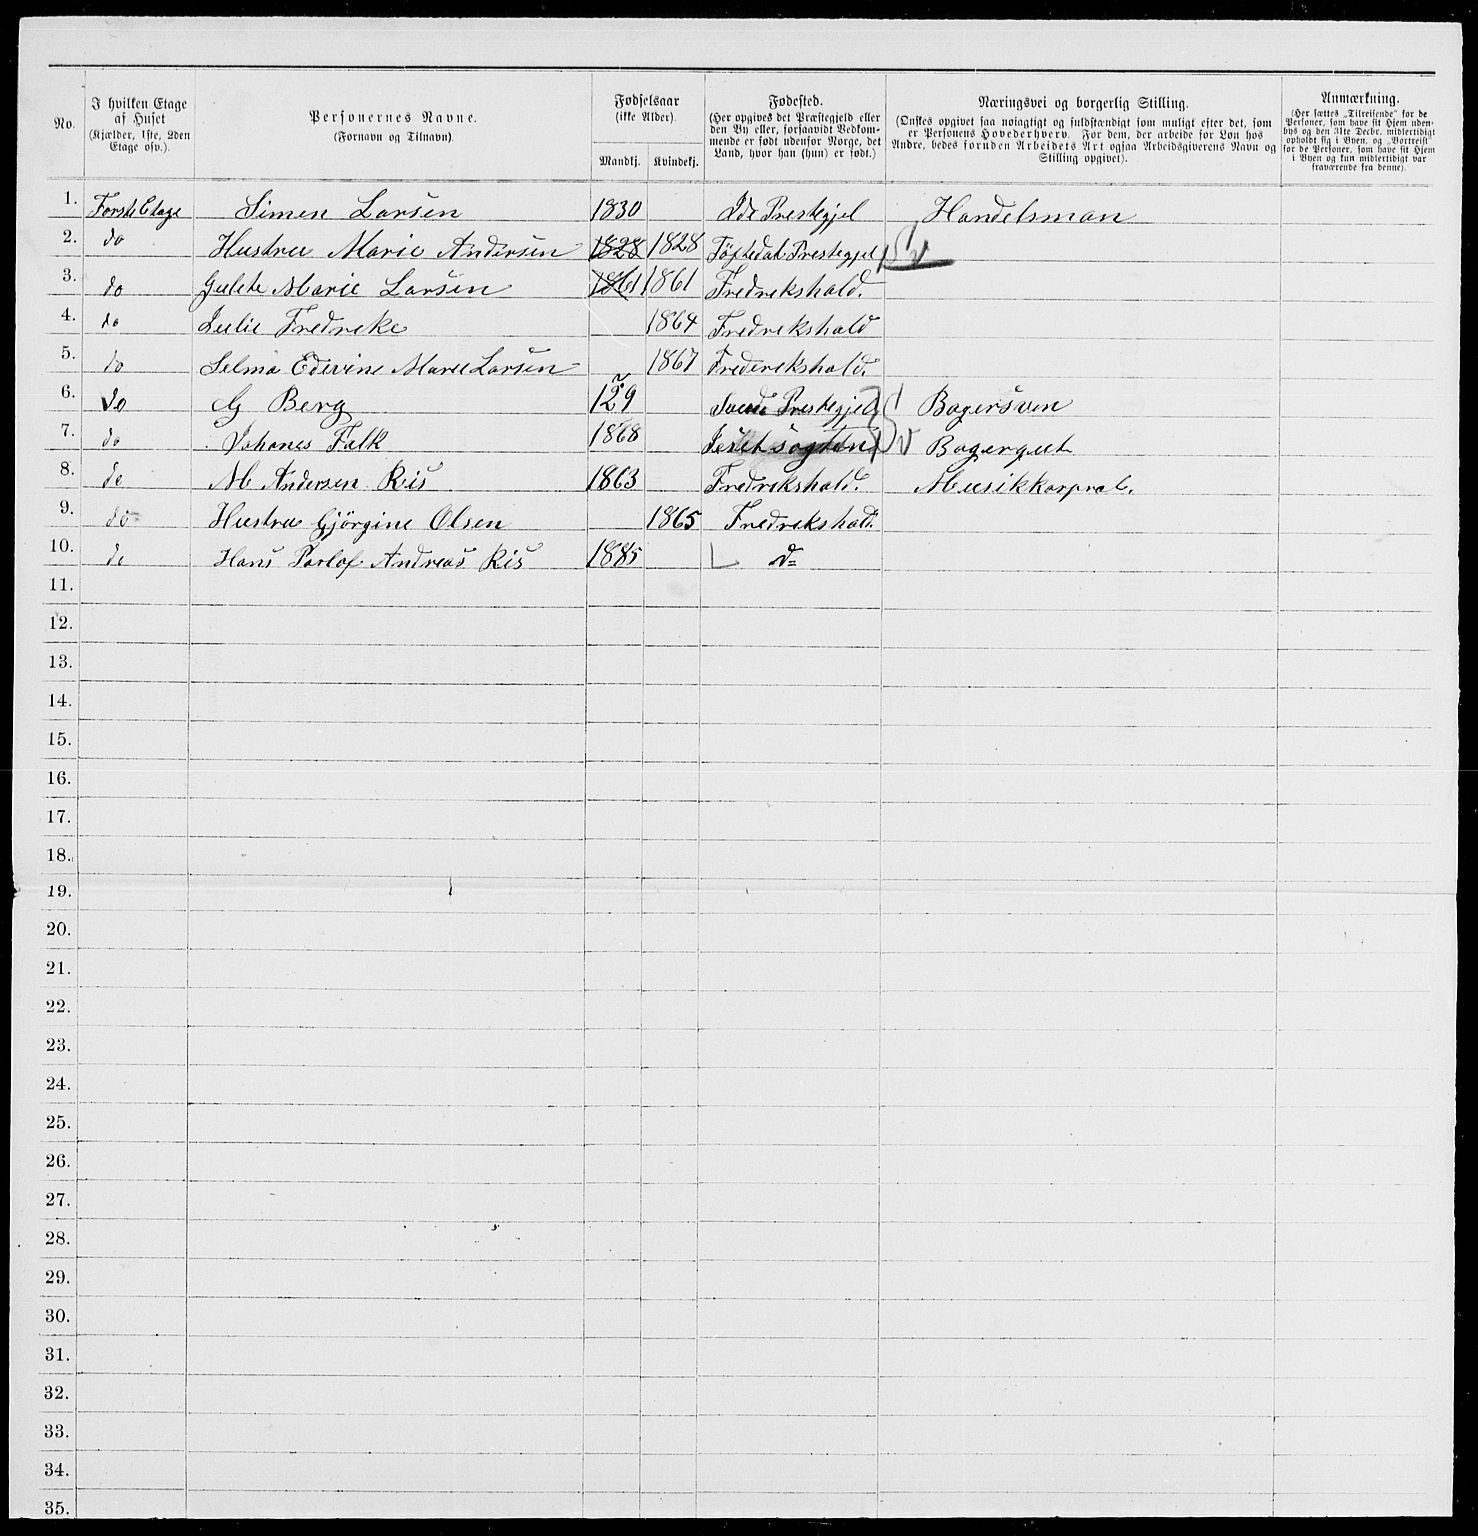 No. | I hvilken Etage af Huset (Kjælder, 1ste, 2den Etage osv.). | Personernes Navne. (Fornavn og Tilnavn). | Fødselsaar (ikke Alder). Mandkj. | Kvindekj. | Fødested. (Her opgives det Præstegjeld eller den By eller, forsaavidt Vedkommende er født udenfor Norge, det Land, hvor han (hun) er født.) | Næringsvei og borgerlig Stilling. (Ønskes opgivet saa nøiagtigt og fuldstændigt som muligt efter det, som er Personens Hovederhverv. For dem, der arbeide for Løn hos Andre, bedes foruden Arbeidets Art ogsaa Arbeidsgiverens Navn og Stilling opgivet). | Anmærkning. (Her sættes „Tilreisende" for de Personer, som have sit Hjem udenbys og den 31te Decbr. midlertidigt opholdt sig i Byen, og „Bortreist" for de Personer, som have sit Hjem i Byen og kun midlertidigt var fraværende fra denne).
1. Første Etage Simen Larsen 1830 Ide Prestegjel Handelsman
2. do Hustru Marie Andersen 1828 1828 Töftedal Prestegjel Sv
3. do Gulete Marie Larsen 1861 1861 Fredrekshald.
4. do Julie Fredreke 1864 Fredrekshald
5. do Selma Edevine Marie Larsen 1867 Frederekshald.
6. do G Berg 129 Prestegjel Bagersven
7. do Johanes Falk 1868 Sv Bagergut
8. do M Andersen Ris 1863 Fredrekshald. Musikkorpral.
9. do Hustru Gjörgine Olsen 1865 Fredrekshald.
10. do Hans Parlof Andreas Ris 1885 do
11.
12.
13.
14.
15.
16.
17.
18.
19.
20.
21.
22.
23.
24.
25.
26.
27.
28.
29.
30.
31.
32.
33.
34.
35.